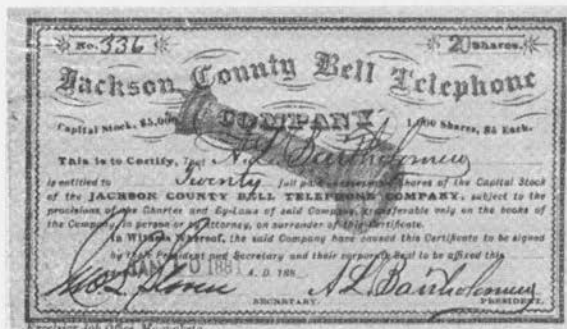 No. 336 20 Shares.
Jackson County Bell Telephone
Capital Stock, $5,000 COMPANY 1,000 Shares, $5 Each.
This is to Certify, That A. L. Bartholomew
is entitled to Twenty full paid Shares of the Capital Stock
of the JACKSON COUNTY BELL TELEPHONE COMPANY, subject to the
provisions of the Charter and By-Laws of said Company, transferable only on the books of
the Company, in person or by Attorney, on surrender of this Certificate.
In Witness Whereof, the said Company have caused this Certificate to be signed
by their President and Secretary and their corporate Seal to be affixed this
JAN 188 A. D. 188
A L Bartholomew
SECRETARY. PRESIDENT.
Excelsior Job Office,